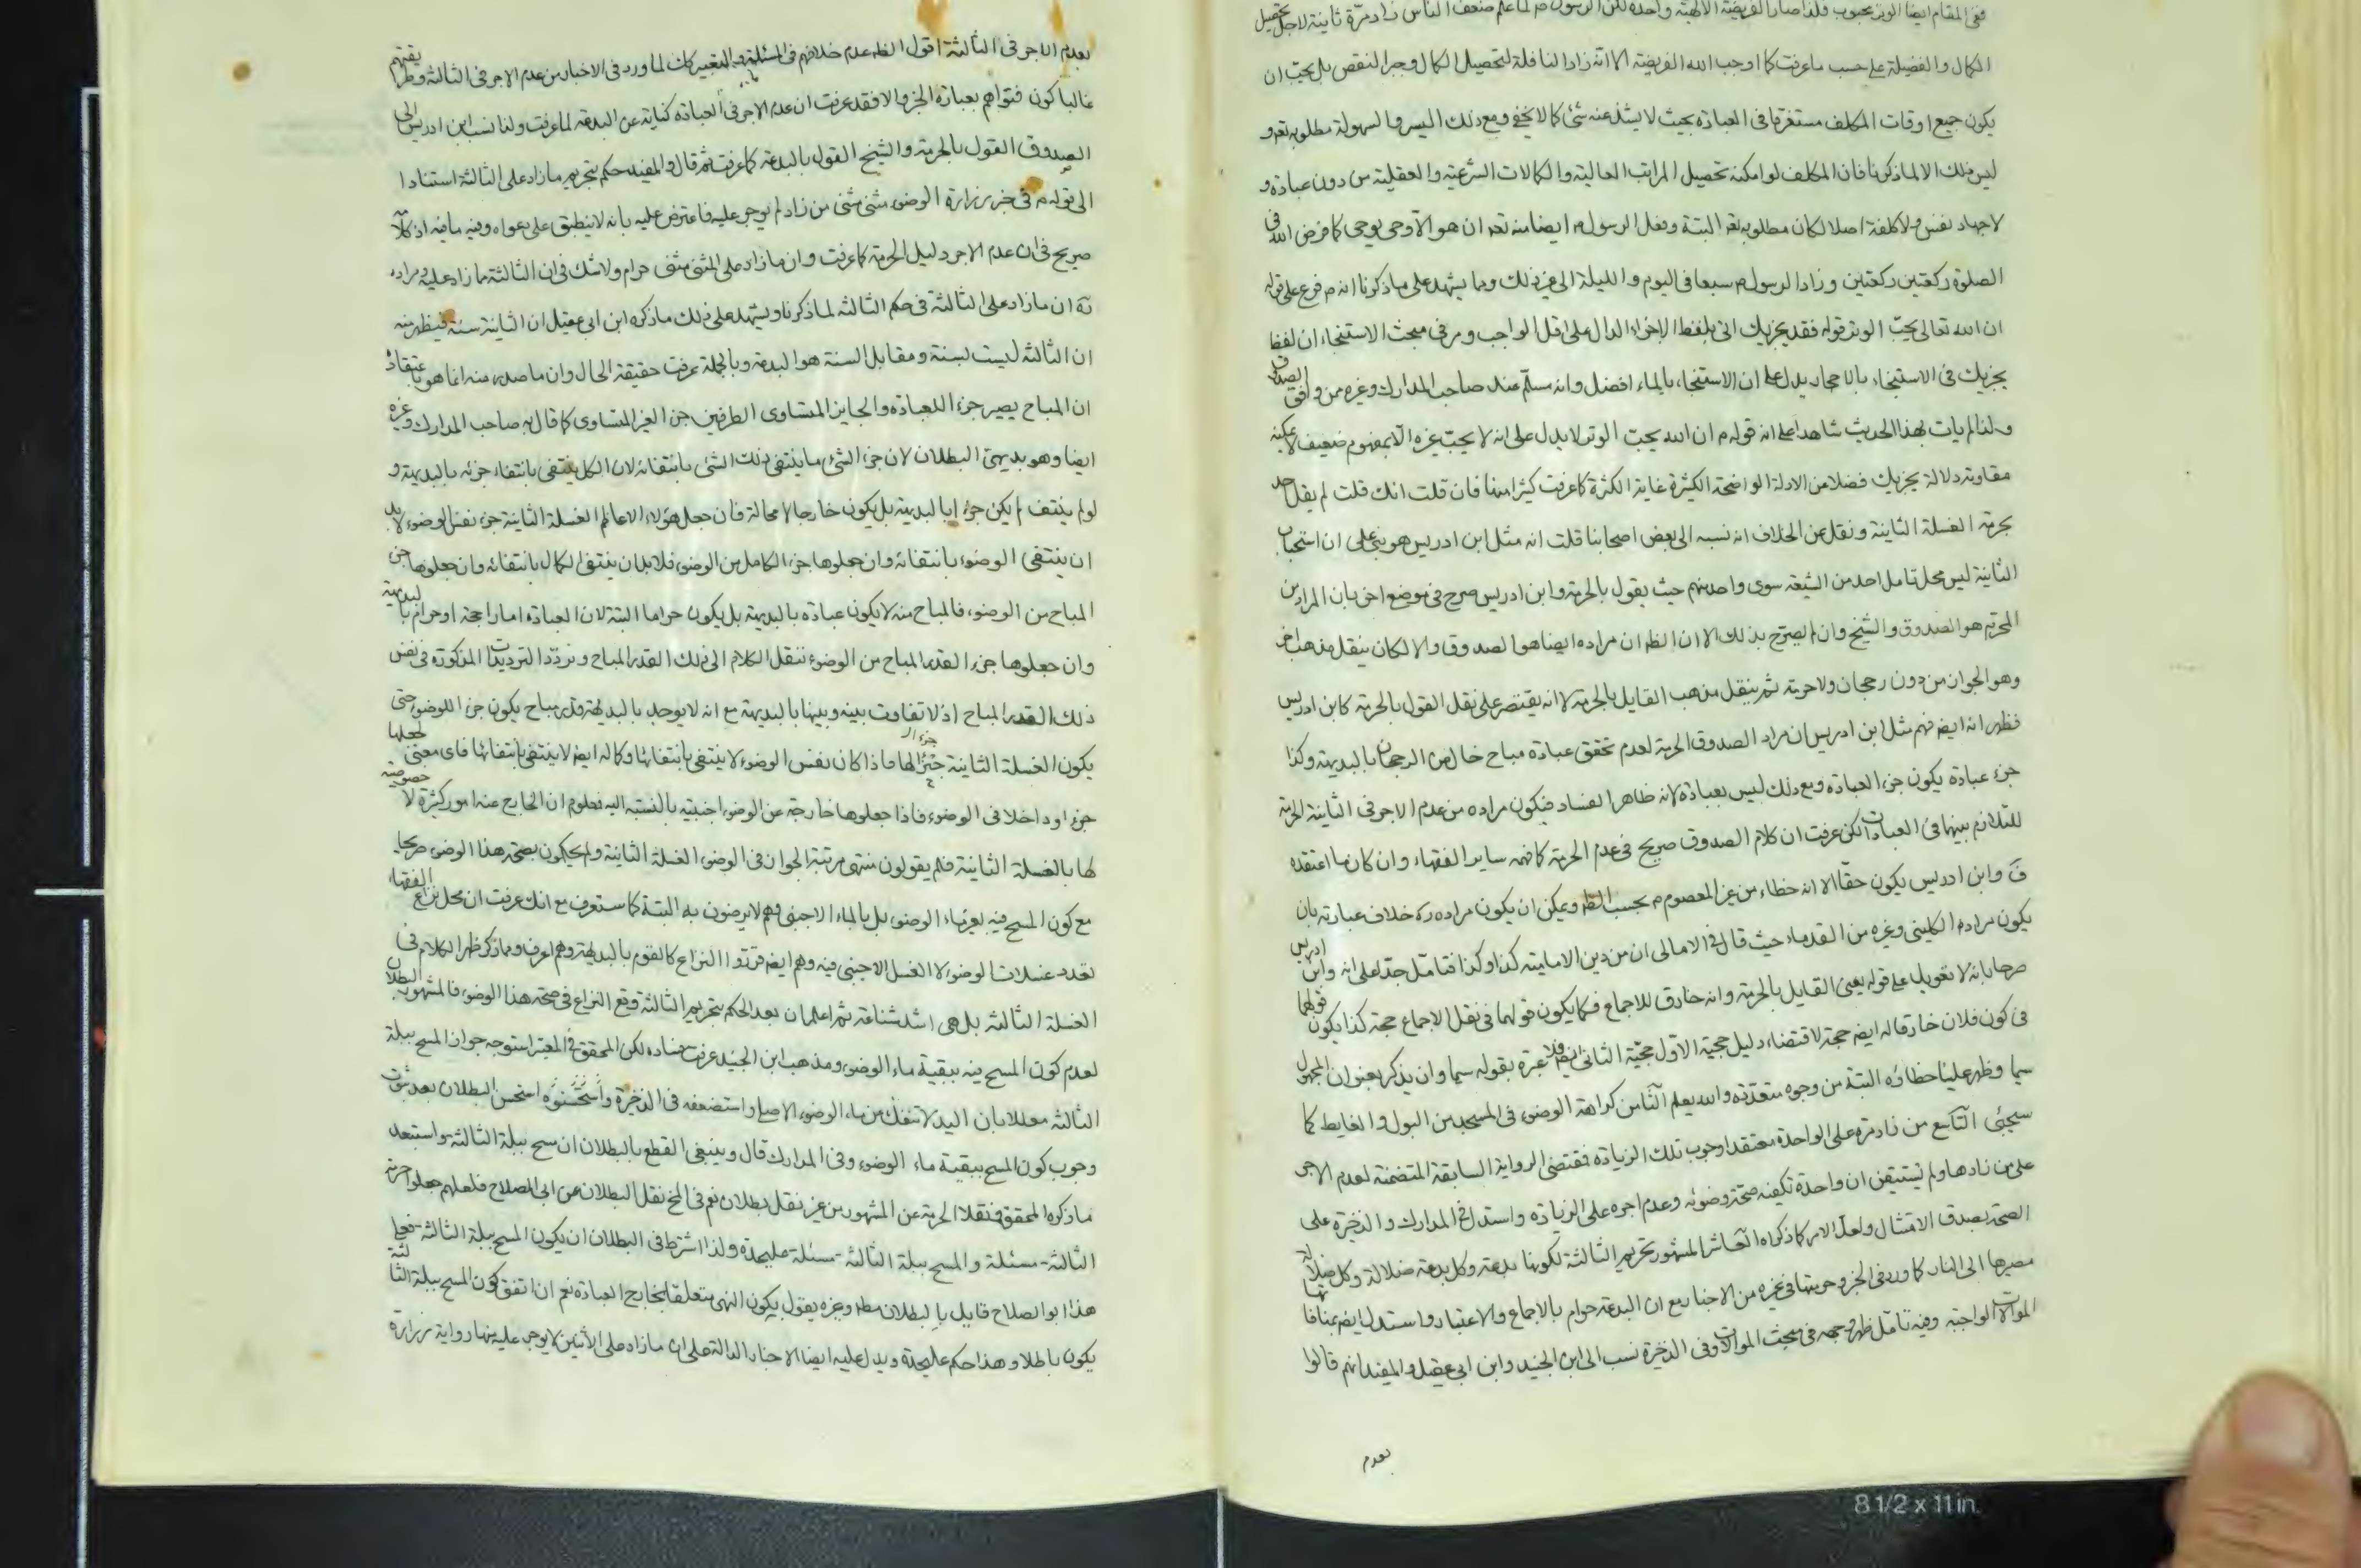 ففى المقام ايضا الوتر محبوب فلذا صار الفريضة الالهية واحدة لكن الرسول ص لما علم ضعف الناس زاد مرّة ثانية لاجل تحصيل
الكمال والفضيلة على حسب ما عرفت كما اوجب الله الفريضة الا انه زاد النافلة لتحصيل الكمال وجبر النقص بل يحبّ ان
يكون جميع اوقات المكلف مستغرقا فى العبادة بحيث لا يشذ عنه شئ كما لا يخفى ومع ذلك اليسر والسهولة مطلوبه تعم و
ليس ذلك الا لما ذكرنا فان المكلف لو امكنه تحصيل المراتب العالية والكمالات الشرعية والعقلية من دون عبادة و
لا جهاد نفس ولا كلفة اصلا لكان مطلوبه تعم البتة وفعل الرسول ص ايضا منه تعم ان هو الا وحى يوحى كما فرض الله فى
الصلوة ركعتين ركعتين وزاد الرسول ص سبعا فى اليوم والليلة الى غير ذلك ومما يشهد على ما ذكرنا انه ص فرع على قوله
ان الله تعالى يحبّ الوتر قوله فقد يجزيك اتى بلفظ الاجزاء الدال على اقل الواجب ومر فى مبحث الاستنجاء ان لفظ
يجزيك فى الاستنجاء بالاحجار يدل على ان الاستنجاء بالماء افضل وانه مسلّم عند صاحب المدارك وغيره ممن وافق الصدوق
ولذا لم يات بهذا الحديث شاهدا على انه قوله م ان الله يحبّ الوتر لا يدل على انه لا يحبّ غيره الا بمفهوم ضعيف لا يمكنه
مقاومة دلالة يجزيك فضلا من الادلة الواضحة الكثيرة غاية الكثرة كما عرفت كثيرا منها فان قلت انك قلت لم يقل احد
بحرمة الغسلة الثانية ونقل عن الخلاف انه نسبه الى بعض اصحابنا قلت انه مثل ابن ادريس هو بنى على ان استحباب
الثانية ليس محل تامل احد من الشيعة سوى واحد منهم حيث يقول بالحرمة وابن ادريس صرح فى موضع اخر بان المراد من
المحرّم هو الصدوق والشيخ وان لم يصرّح بذلك الا ان الظ ان مراده ايضا هو الصدوق والا لكان ينقل مذهبا اخر
وهو الجواز من دون رجحان ولا حرمة ثم ينقل مذهب القايل بالحرمة لا انه يقتصر على نقل القول بالحرمة كابن ادريس
فظهر انه ايض فهم مثل ابن ادريس ان مراد الصدوق الحرمة لعدم تحقق عبادة مباح خال من الرجحان بالبديهة وكذا
جزء عبادة يكون جزء العبادة ومع ذلك ليس بعبادة لانه ظاهر الفساد فيكون مراده من عدم الاجر فى الثانية الحرمة
للتلازم بينهما فى العبادات لكن عرفت ان كلام الصدوق صريح فى عدم الحرمة كما فهمه ساير الفقهاء وان كان ما اعتقده
ق وابن ادريس يكون حقّا الا انه خطاء من غير المعصوم م بحسب الظ ويمكن ان يكون مراده ره خلاف عبارته بان
يكون مراده الكلينى وغيره من القدماء حيث قال فى الامالى ان من دين الامامية كذا وكذا فتامّل جدّا على انه وابن ادريس
صرحا بانه لا تعويل على قوله يعنى القايل بالحرمة وانه خارق للاجماع فكما يكون قولهما فى نقل الاجماع حجة كذا يكون قولهما
فى كون فلان خارقا له ايض حجة لاقتضاء دليل حجية الاول حجيّة الثانى ايض فلا عبرة بقوله سيما وان يذكر بعنوان المجهول
سيما وظهر علينا خطاؤه البتة من وجوه متعدّدة والله يعلم الثامن كراهة الوضوء فى المسجد من البول والغايط كما
سيجئ التاسع من زاد مرة على الواحدة معتقدا وجوب تلك الزيادة فمقتضى الرواية السابقة المتضمنة لعدم الاجر
على من زادها ولم تستيقن ان واحدة تكفيه صحة وضوئه وعدم اجره على الزيادة واستدل فى المدارك والذخيرة على
الصحة بصدق الامتثال ولعل الامر كما ذكراه العاشر المشهور تحريم الثالثة لكونها بدعة وكل بدعة ضلالة وكل ضلالة
مصيرها الى النار كما ورد فى الخبر وحرمتها فى غيره من الاخبار مع ان البدعة حرام بالاجماع والاعتبار واستدل ايض بمنافاتها
الموالات الواجبة وفيه تامّل ظهر وجهه فى مبحث الموالات وفى الذخيرة نسب الى ابن الجنيد وابن ابى عقيل والمفيد انهم قالوا
بعدم
بعدم الاجر فى الثالثة اقول الظ عدم خلافهم فى المسئلة والتعبير كان لما ورد فى الاخبار من عدم الاجر فى الثالثة وطريقتهم
غالبا كون فتواهم بعبارة الخبر والا فقد عرفت ان عدم الاجر فى العبادة كناية عن البدعة لما عرفت ولذا نسب ابن ادريس الى
الصدوق القول بالحرمة والشيخ القول بالبدعة كما عرفت ثم قال والمفيد حكم بتحريم ما زاد على الثالثة استنادا
الى قوله م فى خبر زرارة الوضوء مثنى مثنى من زاد لم يوجر عليه فاعترض عليه بانه لا ينطبق على دعواه وفيه ما فيه اذ كلامه
صريح فى ان عدم الاجر دليل الحرمة كما عرفت وان ما زاد على المثنى مثنى حرام ولا شك فى ان الثالثة مما زاد عليه ومراده
ره ان ما زاد على الثالثة فى حكم الثالثة لما ذكرنا ويشهد على ذلك ما ذكره ابن ابى عقيل ان الثانية سنة فيظهر منه
ان الثالثة ليست بسنة ومقابل السنة هو البدعة وبالجملة عرفت حقيقة الحال وان ما صدر منه انما هو باعتقاد
ان المباح يصير جزء اللعبادة والجايز المتساوى الطرفين جزء الغير المتساوى كما قال به صاحب المدارك وغيره
ايضا وهو بديهى البطلان لان جزء الشئ ما ينتفى ذلك الشئ بانتفائه لان الكل ينتفى بانتفاء جزئه بالبديهة و
لو لم ينتف لم يكن جزءا بالبديهة بل يكون خارجا لا محالة فان جعل هؤلاء الاعاظم الغسلة الثانية جزء نفس الوضوء لا بد
ان ينتفى الوضوء بانتفائه وان جعلوها جزء الكامل من الوضوء فلا بد ان ينتفى الكمال بانتفائه وان جعلوها جزء
المباح من الوضوء فالمباح منه لا يكون عبادة بالبديهة بل يكون حراما البتة لان العبادة اما راجحة او حرام بالبديهة
وان جعلوها جزء القدر المباح من الوضوء ننقل الكلام الى ذلك القدر المباح ونردّد الترديدات المذكورة فى نفس
ذلك القدر المباح اذ لا تفاوت بينه وبينها بالبديهة مع انه لا يوجد بالبديهة قدر مباح يكون جزء اللوضوء حتى
يكون الغسلة الثانية جزءا لها فاذا كان نفس الوضوء لا ينتفى بانتفائها وكماله ايض لا ينتفى بانتفائها فاى معنى لجعلها
جزء او داخلا فى الوضوء فاذا جعلوها خارجة عن الوضوء اجنبية بالنسبة اليه فمعلوم ان الخارج عنه امور كثيرة لا خصوصية
لها بالغسلة الثانية فلم يقولون منتهى مرتبة الجواز فى الوضوء الغسلة الثانية ولم يحكمون بصحة هذا الوضوء صريحا
مع كون المسح فيه بغير ماء الوضوء بل بالماء الاجنبى وهم لا يرضون به البتة كما ستعرف مع انك عرفت ان محل نزاع الفقهاء
تعدد غسلات الوضوء لا الغسل الاجنبى فيه وهم ايض قرّروا النزاع كالقوم بالبديهة وهم اعرف ومما ذكر ظهر الكلام فى
الغسلة الثالثة بل هى اشد شناعة ثم اعلم ان بعد الحكم بتحريم الثالثة وقع النزاع فى صحة هذا الوضوء فالمشهور البطلان
لعدم كون المسح فيه ببقية ماء الوضوء ومذهب ابن الجنيد عرفت فساده لكن المحقق فى المعتبر استوجه جواز المسح ببلة
الثالثة معللا بان اليد لا تنفك من ماء الوضوء الاصلى واستضعفه فى الذخيرة واستحسن البطلان بعد ثبوت
وجوب كون المسح ببقية ماء الوضوء وفى المدارك قال وينبغى القطع بالبطلان ان مسح ببلة الثالثة واستبعد
ما ذكره المحقق فنقلا الحرمة عن المشهور من غير نقل بطلان نعم فى الخ نقل البطلان عن ابى الصلاح فلعلهم جعلوا حرمة
الثالثة مسئلة والمسح ببلة الثالثة مسئلة عليحدة ولذا اشترط فى البطلان ان يكون المسح ببلة الثالثة فعلى
هذا ابو الصلاح قايل بالبطلان مط وغيره يقول بكون النهى متعلقا بخارج العبادة نعم ان اتفق كون المسح ببلة الثالثة
يكون باطلا وهذا حكم عليحدة ويدل عليه ايضا الاخبار الدالة على ان ما زاد على الاثنين لا يوجر عليه منها رواية زرارة
8 1/2 x 11 in.